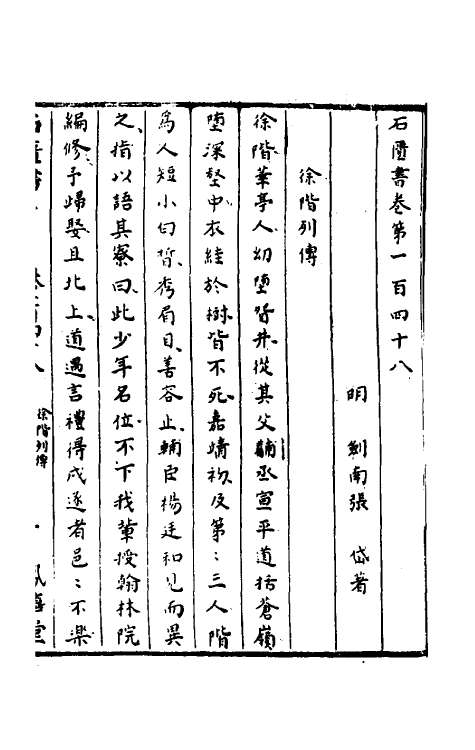 石匱書卷第一百四十八
明 劍南張 岱著
徐階列傳
徐階華亭人幼墮眢井從其父輔丞宣平道括蒼嶺
墮深壑中衣絓於樹皆不死嘉靖初及第〻三人階
爲人短小白皙秀眉目善容止輔臣楊廷和見而異
之指以語其寮曰此少年名位不下我輩授翰林院
編修予歸娶且北上道遇言禮得戍逐者邑〻不樂
徐階列傳